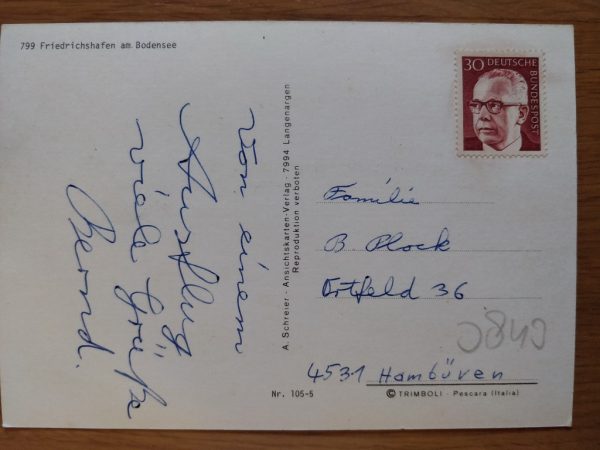 799 Friedrichshafen am Bodensee
von einem
Ausflug
viele Grüße
Bernd.
A. Schreier - Ansichtskarten-Verlag - 7994 Langenargen
Reproduktion verboten
30 DEUTSCHE
BUNDESPOST
Familie
B Plock
Ortfeld 36
4531 Hambüren
Nr. 105-5
© TRIMBOLI - Pescara (Italia)